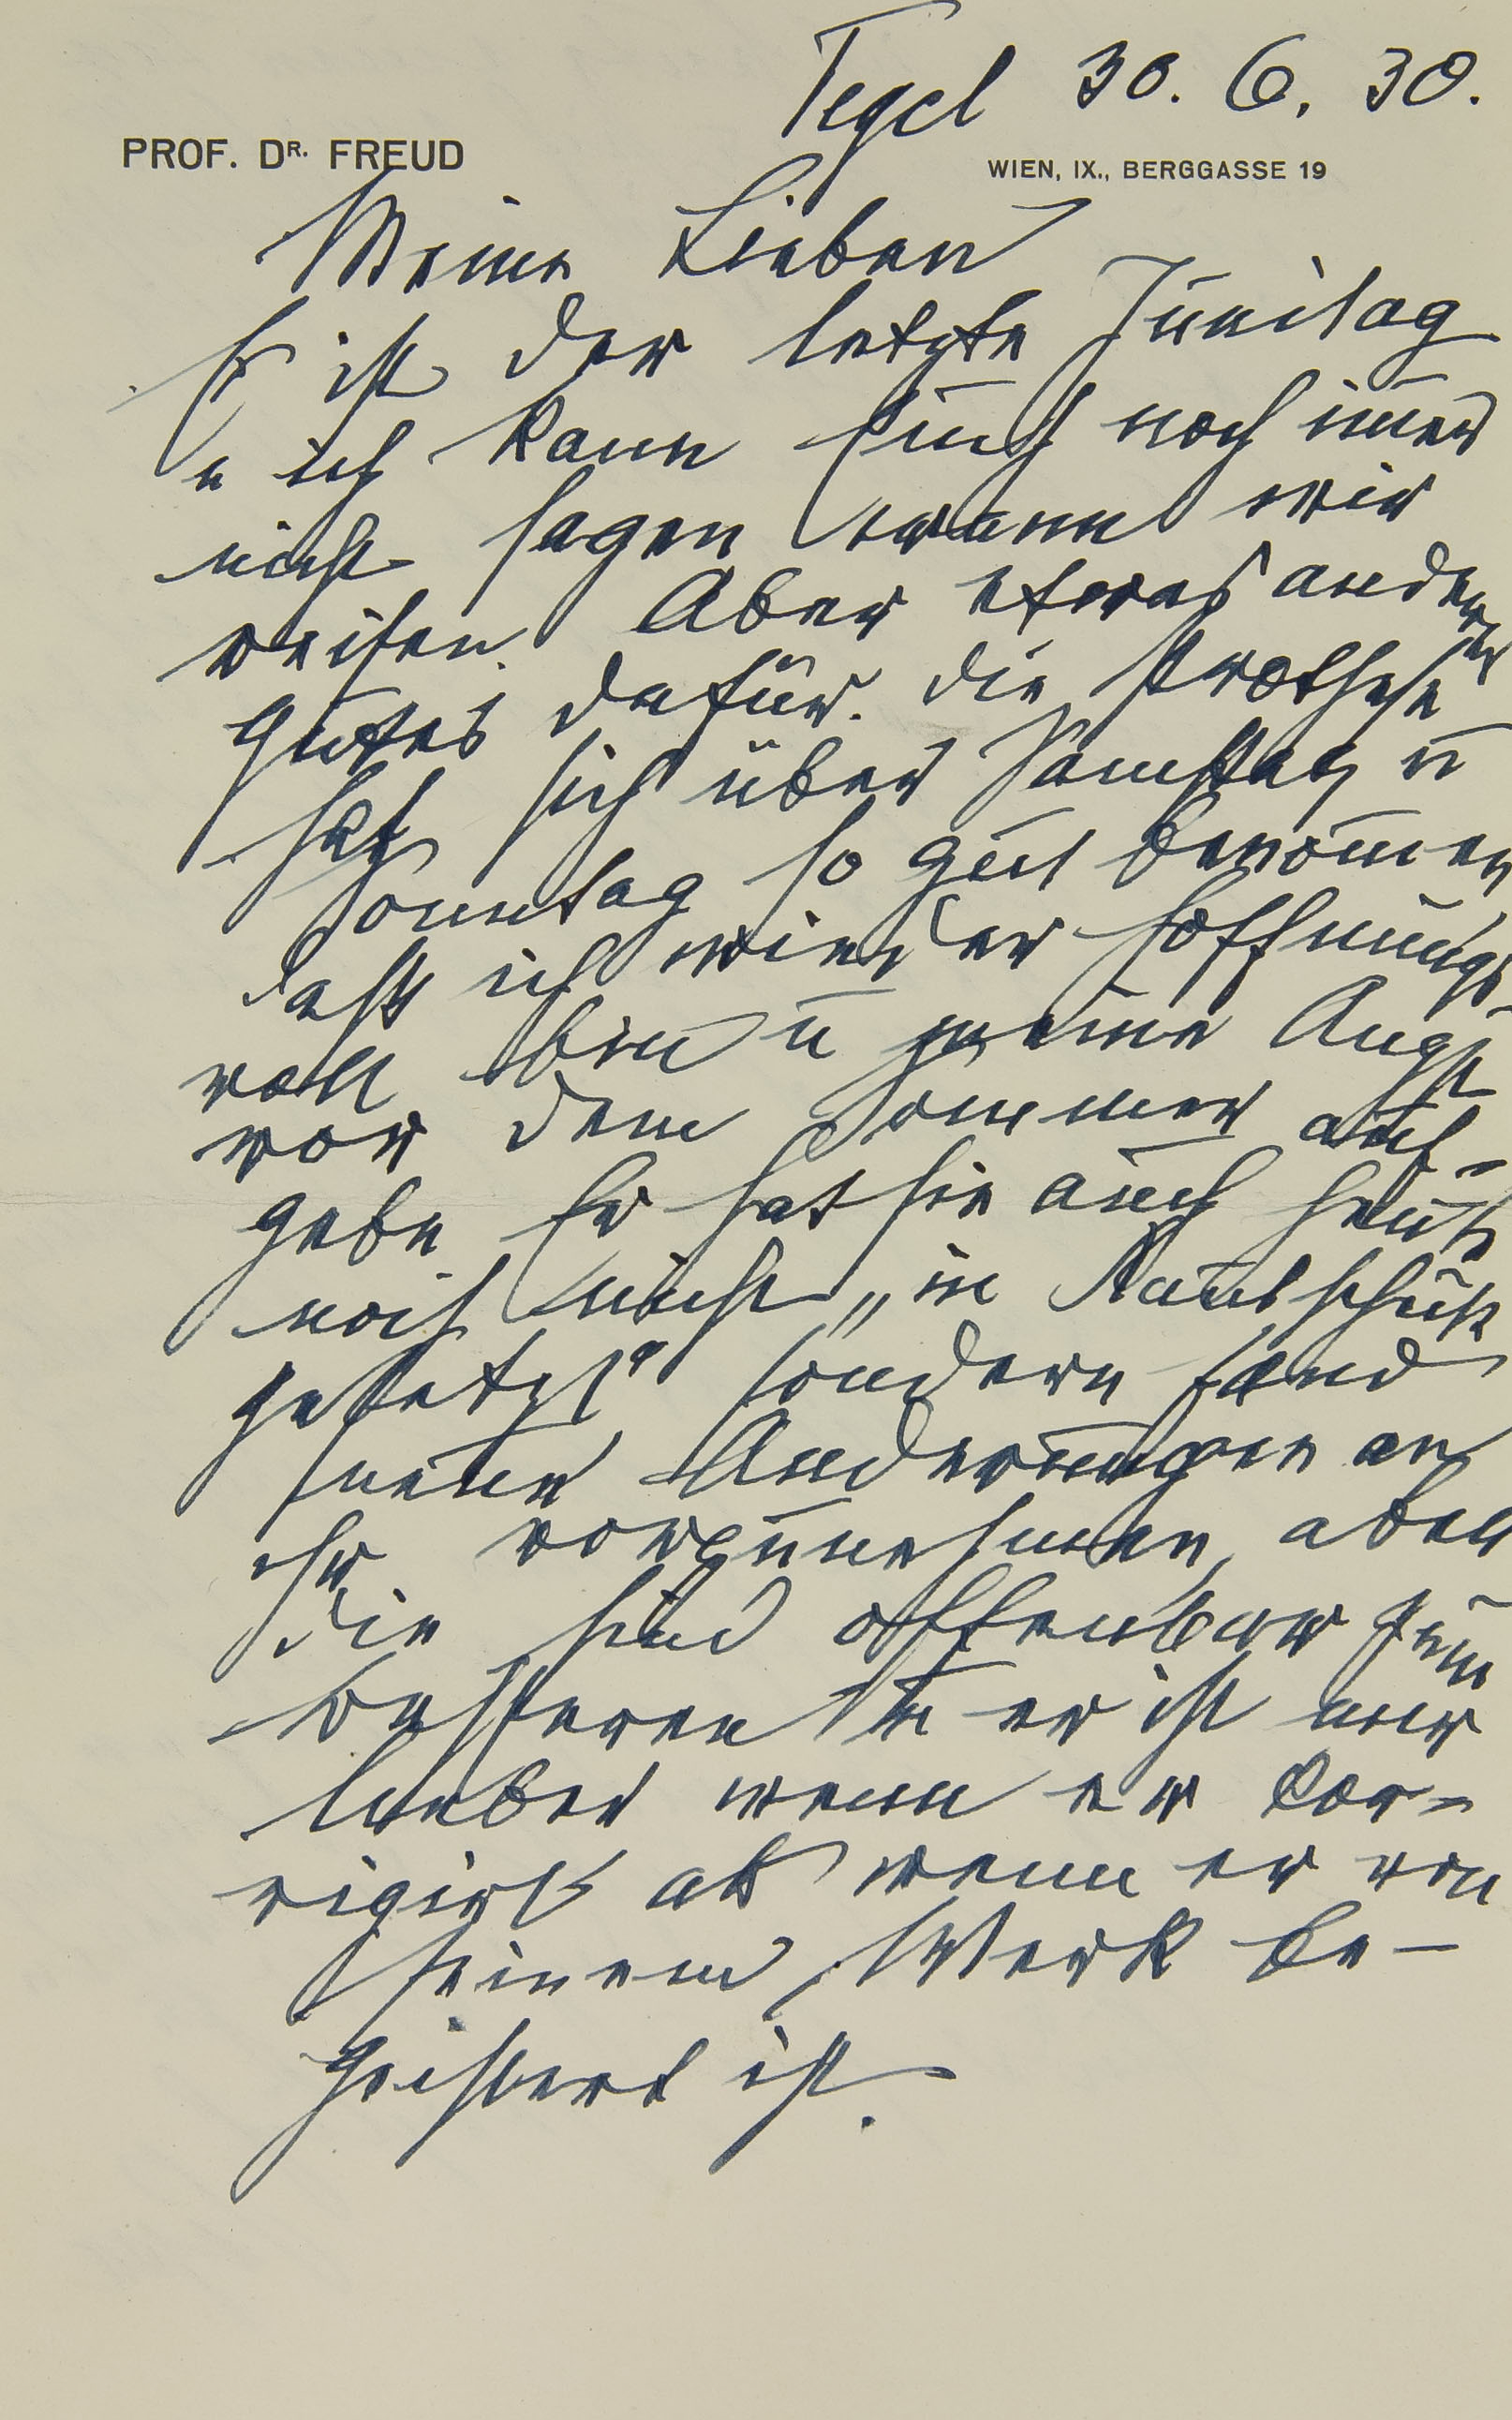 Tegel 30. 6. 30.
PROF. DR. FREUD
WIEN, IX., BERGGASSE 19
Meine Lieben
Es ist der letzte Junitag
u ich kann Euch noch im̄er
nicht sagen wann wir
reisen. Aber etwas anderes
gutes dafür. die Prothese
hat sich über Samstag u
Sonntag so gut benom̄en
dass ich wieder hoffnungs-
voll bin u meine Angst
vor dem Sommer auf-
gebe Er hat sie auch heute
noch nicht „in Kautschuk
gesetzt" sondern fand
neue Änderungen an
ihr vorzunehmen, aber
die sind offenbar zum
besseren u er ist mir
lieber wenn er cor-
rigirt als wenn er von
seinem Werk be-
geistert ist.